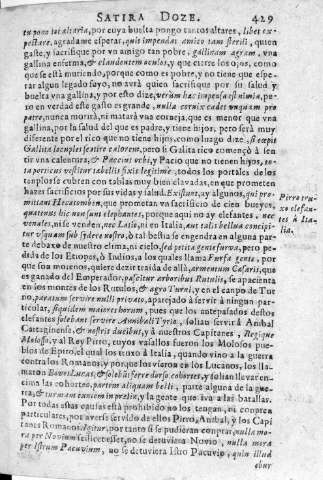 SATIRA DOZE. 429
tu pone tot altaria, por cuya buelta pongo tantos altares, libet ex-
pectare, agradame esperar, quis impendat amico tam sterili, quien
gaste, y sacrifique por vn amigo tan pobre, gallinam agram, vna
gallina enferma, & claudentem oculos, y que cierre los ojos, como
que se està muriendo, porque como es pobre, y no tiene que espe-
rar algun legado suyo, no avrà quien sacrifique por su salud y
buelta vna gallina, y por esto dize, verùm hac impensa est nimia, pe-
ro en verdad este gasto es grande, nulla cornix cadet vnquam pro
patre, nunca morirà, ni matarà vna corneja, que es menor que vna
gallina, por la salud del que es padre, y tiene hijos, pero serà muy
diferente por el rico que no tiene hijos, como luego dize, si cæpit
Gallita locuples sentire calorem, pero si Galita rico començò à sen-
tir vna calentura, & Paccius orbi, y Pacio que no tienen hijos, to-
ta porticus vestitur tabellis fixis legitimè, todos los portales de los
templos se cubren con tablas muy bien clavadas, en que prometen
hazer sacrificio por sus vidas y salud. Existunt, ay algunos, qui pro-
mittant Hecatomben, que prometan vn sacrificio de cien bueyes,
quatenus hic non sunt elephantes, porque aqui no ay elefantes, nec
venales, ni se venden, nec Latio, ni en Italia, aut talis bellua concipi-
tur vsquam sub sidere nostro, ò tal bestia se engendra en alguna par-
te debaxo de nuestro clima, ni cielo, sed petita gente furva, pero pe-
dida de los Etiopos, ò Indios, a los quales llama Furva gente, por
que son morenos, quiere dezir traida de allà, armentum Cæsaris, que
es ganado del Emperador, pascitur arboribus Rutulis, se apacienta
en los montes de los Rutulos, & agro Turni, y en el campo de Tur
no, paratum servire nulli privato, aparejado à servir à ningun par-
ticular, siquidem maiores horum, pues que los antepasados destos
elefantes solebant servire Annibali Tyrio, solian servir à Anibal
Cartaginense, & nostris ducibus, y à nuestros Capitanes, Regique
Molosso, y al Rey Pirro, cuyos vasallos fueron los Molosos pue-
blos de Epiro, el qual los truxo à Italia, quando vino a la guerra
contra los Romanos, y porque los vieron en los Lucanos, los lla-
maron Boves Lucas, & solebãt ferre dorso cohortes, y solian llevar en-
cima las cohortes, partem aliquam belli, parte alguna de la gue-
rra, & turrim euntem in prælia, y la gente que iva a las batallas.
Por todas estas causas està prohibido no los tengan, ni compren
particulares, por averse servido de ellos Pirro, Anibal, y los Capi
tanes Romanos. Igitur, por tanto si se pudieran comprar, nulla mo-
ra per Novium scilicet esset, no se detuviera Novio, nulla mora
per Istrum Pacuvium, no se detuviera Istro Pacuvio, quin illud
ebur
Pirro tru-
xo elefan-
tes à Ita-
lia.